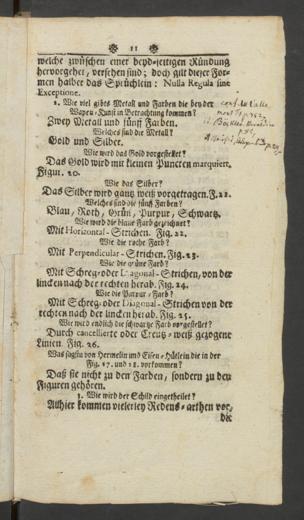 ❉ 11 ❉
welche zwüschen einer beyd-seitigen Ründung
hervorgehet, versehen sind; doch gilt dieser For-
men halber das Sprüchlein: Nulla Regula sine
Exceptione.
2. Wie viel gibts Metall und Farben die bey der
Wapen-Kunst in Betrachtung kommen?
Zwey Metall und fünff Farben.
Welches sind die Metall?
Gold und Silber.
Wie wird das Gold vorgestellet?
Das Gold wird mit kleinen Puncten marquiert,
Figur. 20.
Wie das Silber?
Das Silber wird gantz weiß vorgetragen. F. 21.
Welches sind die fünff Farben?
Blau, Roth, Grün, Purpur, Schwartz.
Wie wird die blaue Farb gezeichnet?
Mit Horizontal-Strichen. Fig. 22.
Wie die rothe Farb?
Mit Perpendicular-Strichen. Fig. 23.
Wie die grüne Farb?
Mit Schreg- oder Diagonal-Strichen, von der
lincken nach der rechten herab. Fig. 24.
Wie die Purpur-Farb?
Mit Schreg- oder Diagonal-Strichen von der
rechten nach der lincken herab. Fig. 25.
Wie wird endlich die schwartze Farb vorgestellet?
Durch cancellierte oder Creutz-weiß gezogene
Linien. Fig. 26.
Was sagstu von Hermelin und Eisen-Hütlein die in der
Fig. 17. und 18. vorkommen?
Daß sie nicht zu den Farben, sondern zu den
Figuren gehören.
3. Wie wird der Schild eingetheilet?
Allhier kommen vielerley Redens-arthen vor,
die